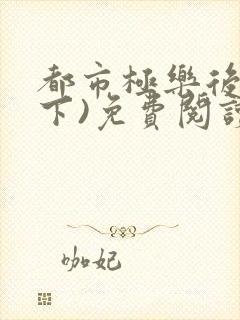 都市極樂後
下)免費閱讀
咖妃